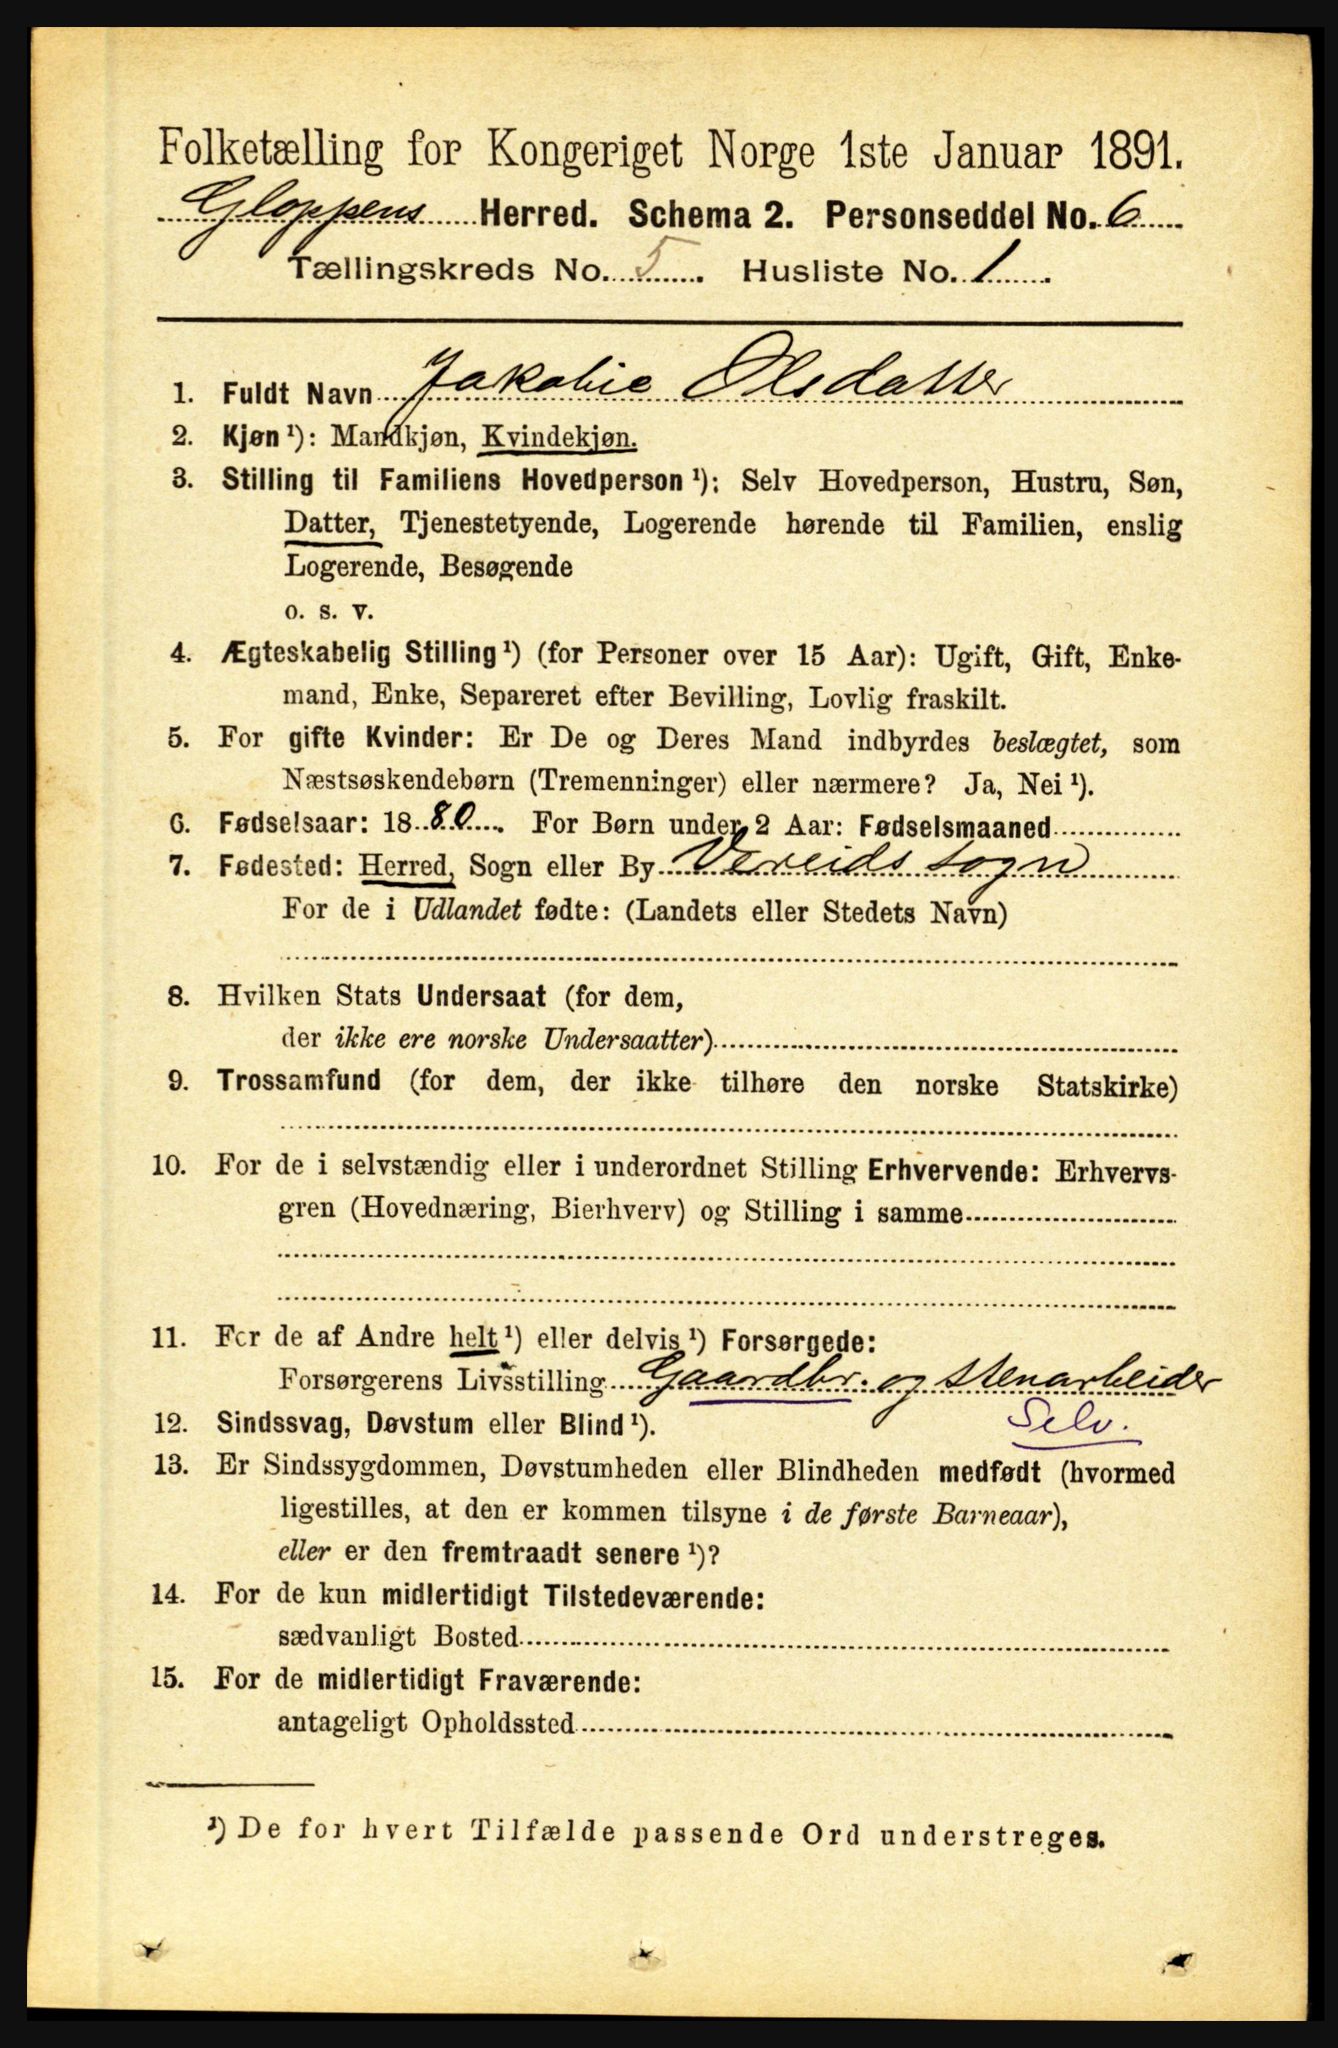 Folketælling for Kongeriget Norge 1ste Januar 1891.
Gloppens Herred. Schema 2. Personseddel No. 6
Tællingskreds No. 5. Husliste No. 1.
1. Fuldt Navn Jakobie Olsdatter
2. Kjøn ¹): Mandkjøn, Kvindekjøn.
3. Stilling til Familiens Hovedperson ¹): Selv Hovedperson, Hustru, Søn,
Datter, Tjenestetyende, Logerende hørende til Familien, enslig
Logerende, Besøgende
o. s. v.
4. Ægteskabelig Stilling ¹) (for Personer over 15 Aar): Ugift, Gift, Enke-
mand, Enke, Separeret efter Bevilling, Lovlig fraskilt.
5. For gifte Kvinder: Er De og Deres Mand indbyrdes beslægtet, som
Næstsøskendebørn (Tremenninger) eller nærmere? Ja, Nei ¹).
6. Fødselsaar: 1880. For Børn under 2 Aar: Fødselsmaaned
7. Fødested: Herred, Sogn eller By Vereids sogn
For de i Udlandet fødte: (Landets eller Stedets Navn)
8. Hvilken Stats Undersaat (for dem,
der ikke ere norske Undersaatter)
9. Trossamfund (for dem, der ikke tilhøre den norske Statskirke)
10. For de i selvstændig eller i underordnet Stilling Erhvervende: Erhvervs-
gren (Hovednæring, Bierhverv) og Stilling i samme
11. For de af Andre helt ¹) eller delvis ¹) Forsørgede:
Forsørgerens Livsstilling Gaardbr. og Stenarbeider
12. Sindssvag, Døvstum eller Blind ¹). Selv.
13. Er Sindssygdommen, Døvstumheden eller Blindheden medfødt (hvormed
ligestilles, at den er kommen tilsyne i de første Barneaar),
eller er den fremtraadt senere ¹)?
14. For de kun midlertidigt Tilstedeværende:
sædvanligt Bosted
15. For de midlertidigt Fraværende:
antageligt Opholdssted
¹) De for hvert Tilfælde passende Ord understreges.